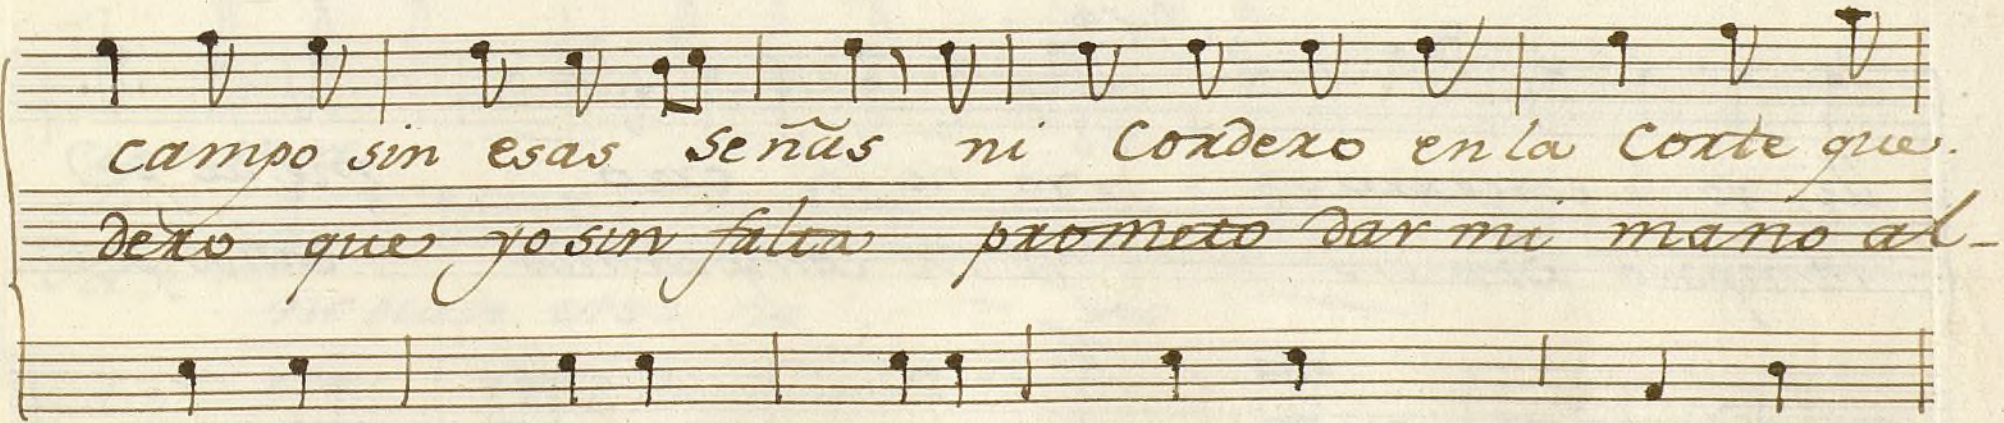 campo sin esas señas ni Cordero en la Corte que.
dero que yo sin falta prometo dar mi mano al-